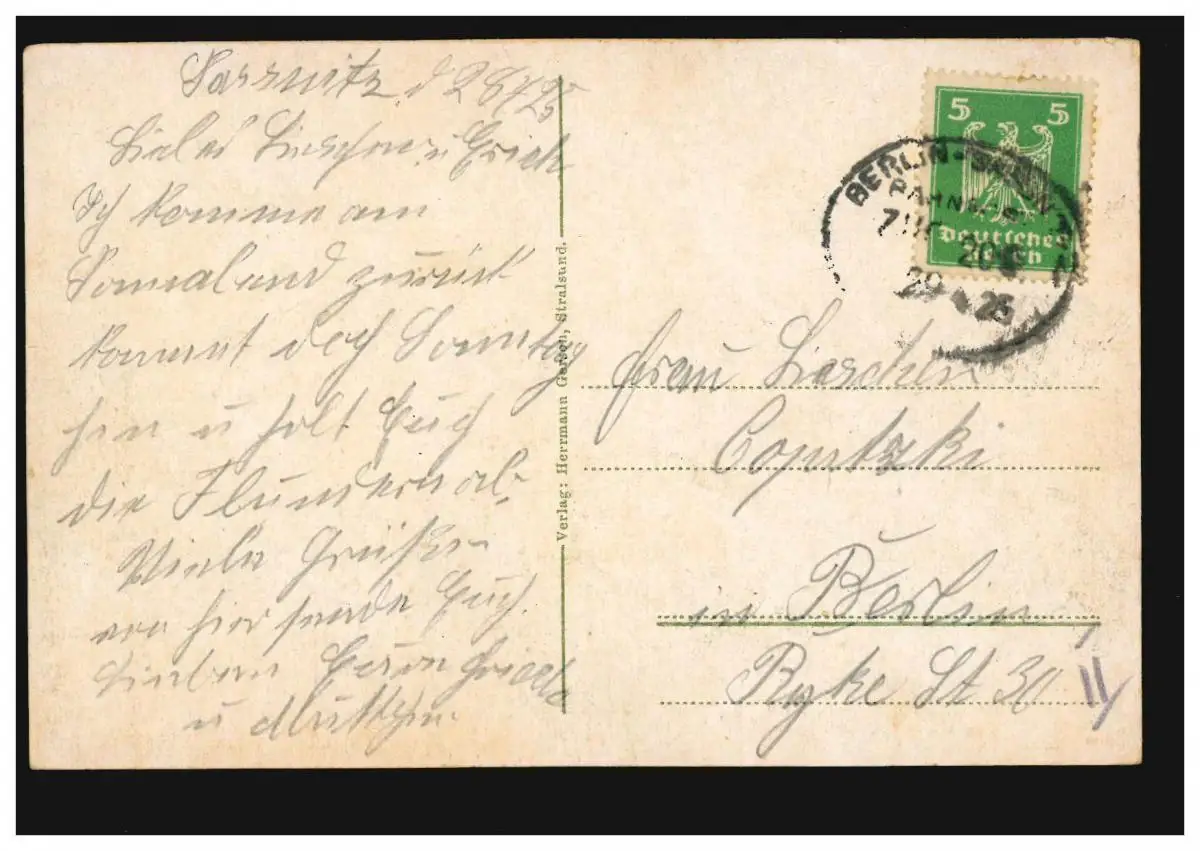 Sassnitz d 28/7 25
Liebes Lieschen u Erich
Ich komme am
Sonnabend zurück
kommt doch Sonntag
hin u holt Euch
die Flundern ab.
Viele Grüße
von hier sende Euch
Lieben
u Muttchen.
Verlag: Herrmann Gerson, Stralsund.
5 5
Deutsches
Reich
BERLIN-
BAHNPOST
ZUG 20
29 25
Frau Lieschen
Coputzki
in Berlin
Ryke St 30
11